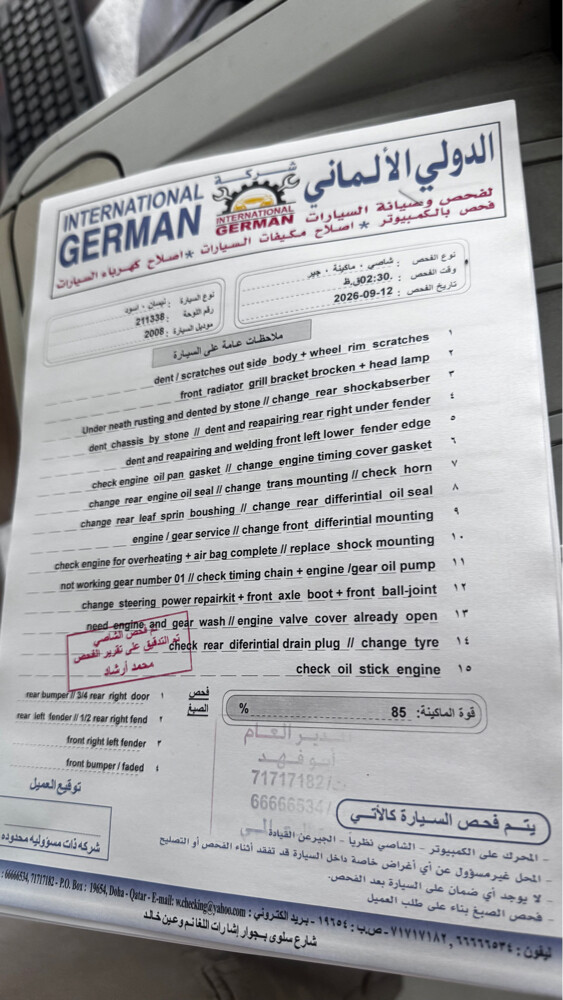 INTERNATIONAL GERMAN
شركة
INTERNATIONAL GERMAN
الدولي الألماني
لفحص وصيانة السيارات
فحص بالكمبيوتر * اصلاح مكيفات السيارات * اصلاح كهرباء السيارات
نوع الفحص : شاصي ، ماكينة ، جير
وقت الفحص : 02:30
تاريخ الفحص : 2026-09-12
نوع السيارة : نيسان ، اسود
رقم اللوحة : 211338
موديل السيارة : 2008
ملاحظات عامة على السيارة
١ dent / scratches out side body + wheel rim scratches
٢ front radiator grill bracket brocken + head lamp
٣ Under neath rusting and dented by stone // change rear shockabserber
٤ dent chassis by stone // dent and reapairing rear right under fender
٥ dent and reapairing and welding front left lower fender edge
٦ check engine oil pan gasket // change engine timing cover gasket
٧ change rear engine oil seal // change trans mounting // check horn
٨ change rear leaf sprin boushing // change rear differintial oil seal
٩ engine / gear service // change front differintial mounting
١٠ check engine for overheating + air bag complete // replace shock mounting
١١ not working gear number 01 // check timing chain + engine /gear oil pump
١٢ change steering power repairkit + front axle boot + front ball-joint
١٣ need engine and gear wash // engine valve cover already open
١٤ check rear diferintial drain plug // change tyre
١٥ check oil stick engine
تم فحص الشاصي
تم التدقيق على تقرير الفحص
محمد أرشاد
فحص الصبغ
١ rear bumper // 3/4 rear right door
٢ rear left fender // 1/2 rear right fend
٣ front right left fender
٤ front bumper / faded
قوة الماكينة: 85 %
مدير العام
أبو فهد
71717182
66666534
توقيع العميل
شركة ذات مسؤوليه محدوده
يتم فحص السيارة كالأتي
- المحرك على الكمبيوتر - الشاصي نظرياً - الجير عن القيادة
- المحل غير مسؤول عن أي أغراض خاصة داخل السيارة قد تفقد أثناء الفحص أو التصليح
- لا يوجد أي ضمان على السيارة بعد الفحص.
- فحص الصبغ بناء على طلب العميل
تيلفون : ٦٦٦٦٦٥٣٤ , ٧١٧١٧١٨٢ - ص.ب : ١٩٦٥٤ - بريد الكتروني : : 66666534, 71717182 - P.O. Box : 19654, Doha - Qatar - E-mail: w.checking@yahoo.com
شارع سلوى بجوار إشارات اللغانم وعين خالد